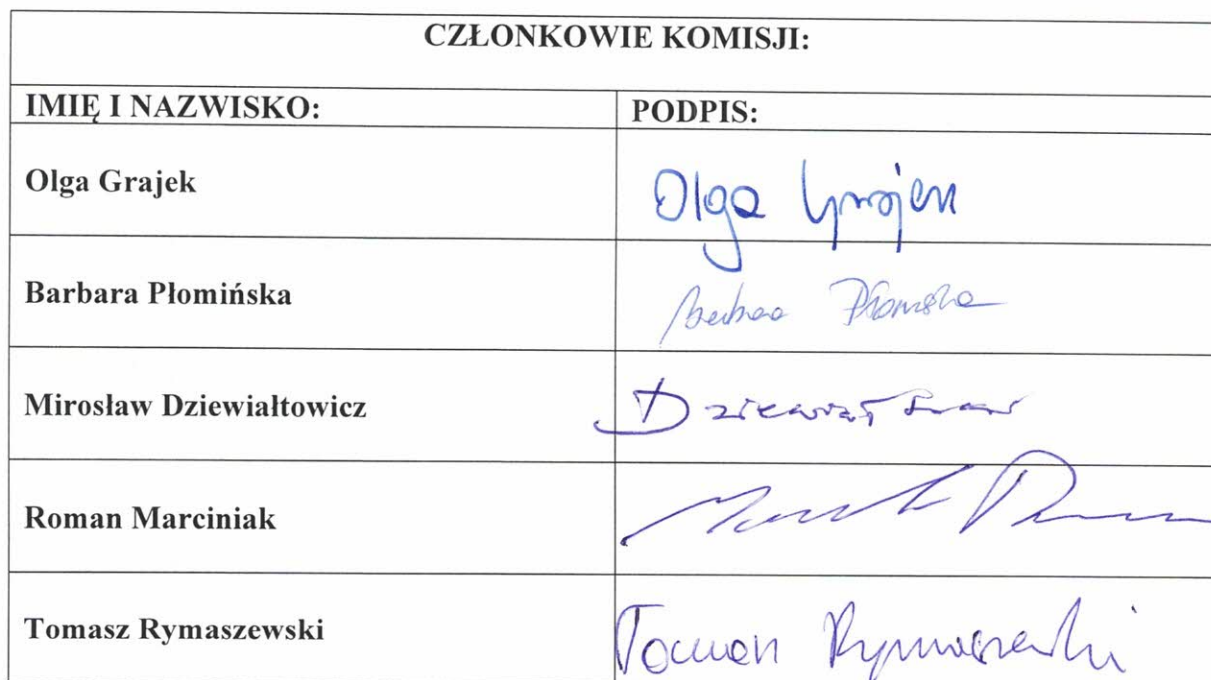 CZŁONKOWIE KOMISJI:
IMIĘ I NAZWISKO: PODPIS:
Olga Grajek Olga Grajek
Barbara Płomińska Barbara Płomińska
Mirosław Dziewiałtowicz
Roman Marciniak
Tomasz Rymaszewski Tomasz Rymaszewski